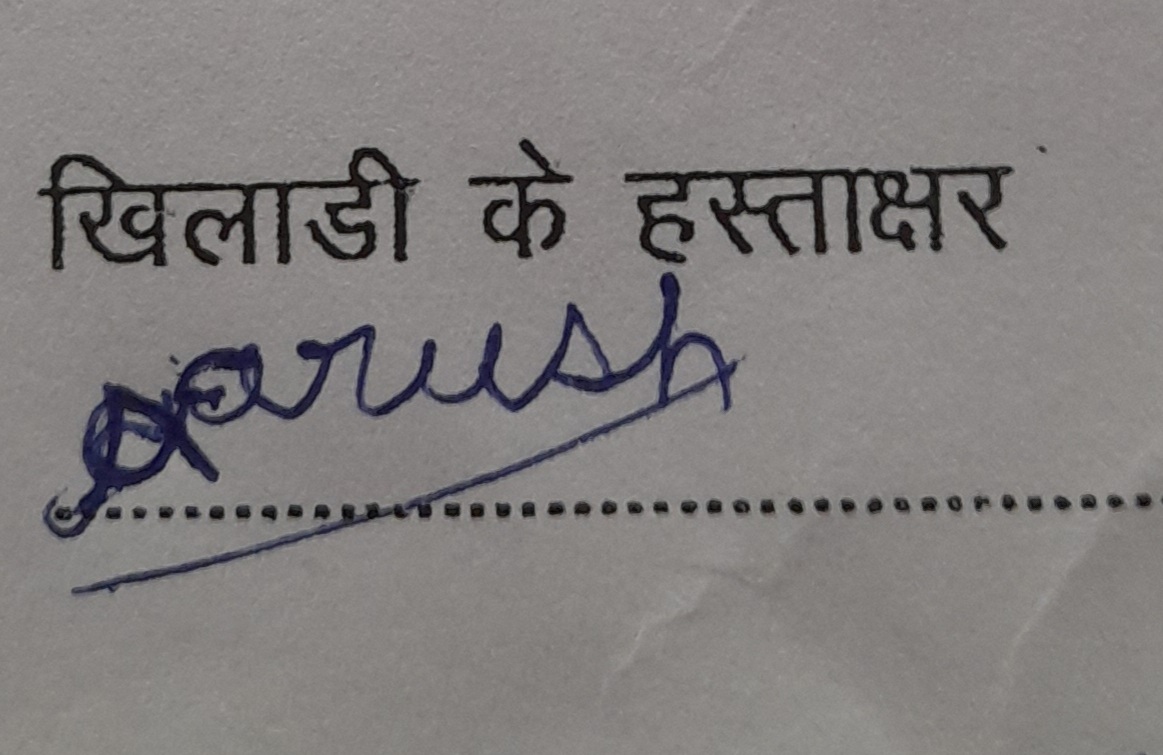 खिलाडी के हस्ताक्षर
Aarush